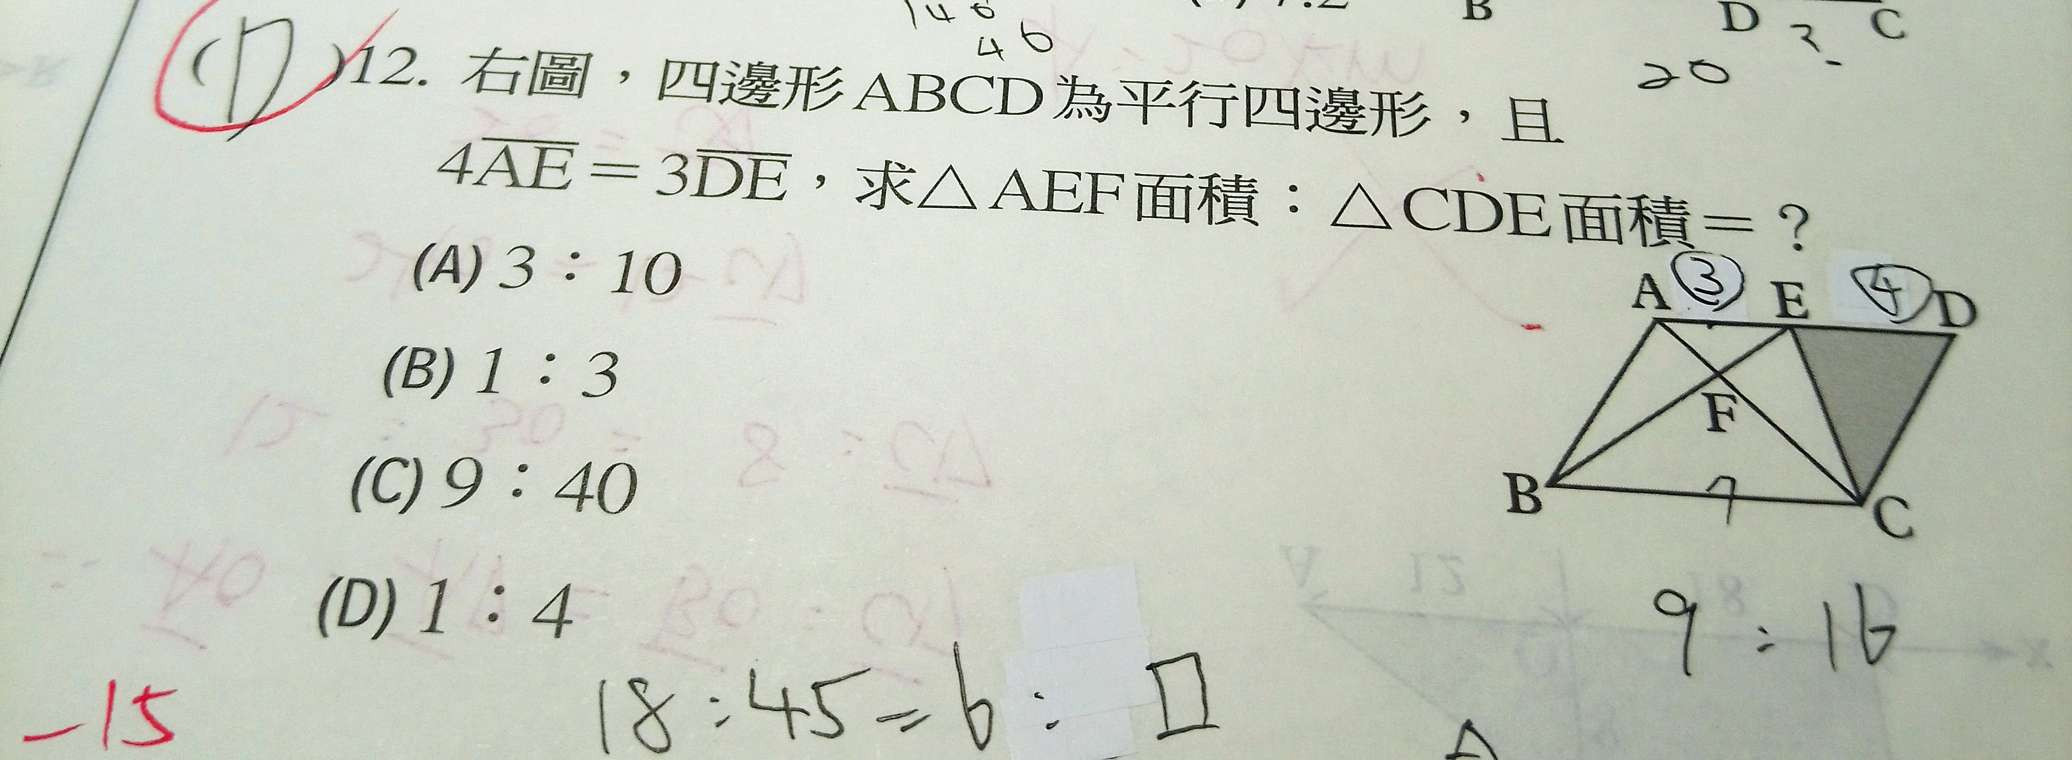 146
46
B
D
C
20
(D)12. 右圖，四邊形ABCD為平行四邊形，且
4AE＝3DE，求△AEF面積：△CDE面積＝？
(A) 3：10
A ③ E ④ D
(B) 1：3
F
(C) 9：40
B 7 C
(D) 1：4
9：16
-15
18：45＝6：□